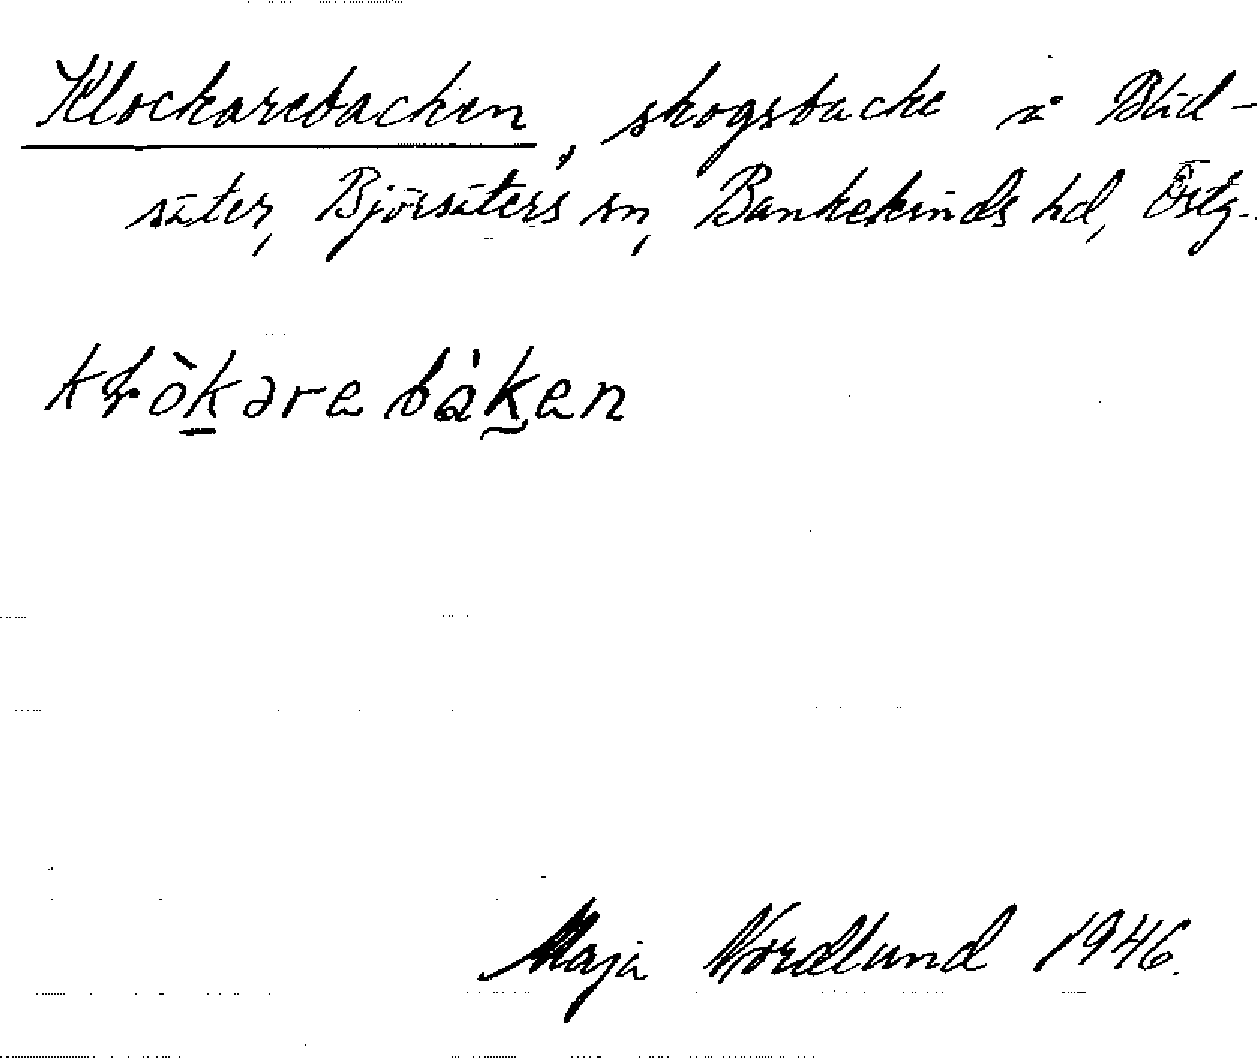 Klockarebacken, skogsbacke i Blid-
säter, Björsäters sn, Bankekinds hd, Östg.
kḷòkare bàken
Maja Nordlund 1946.